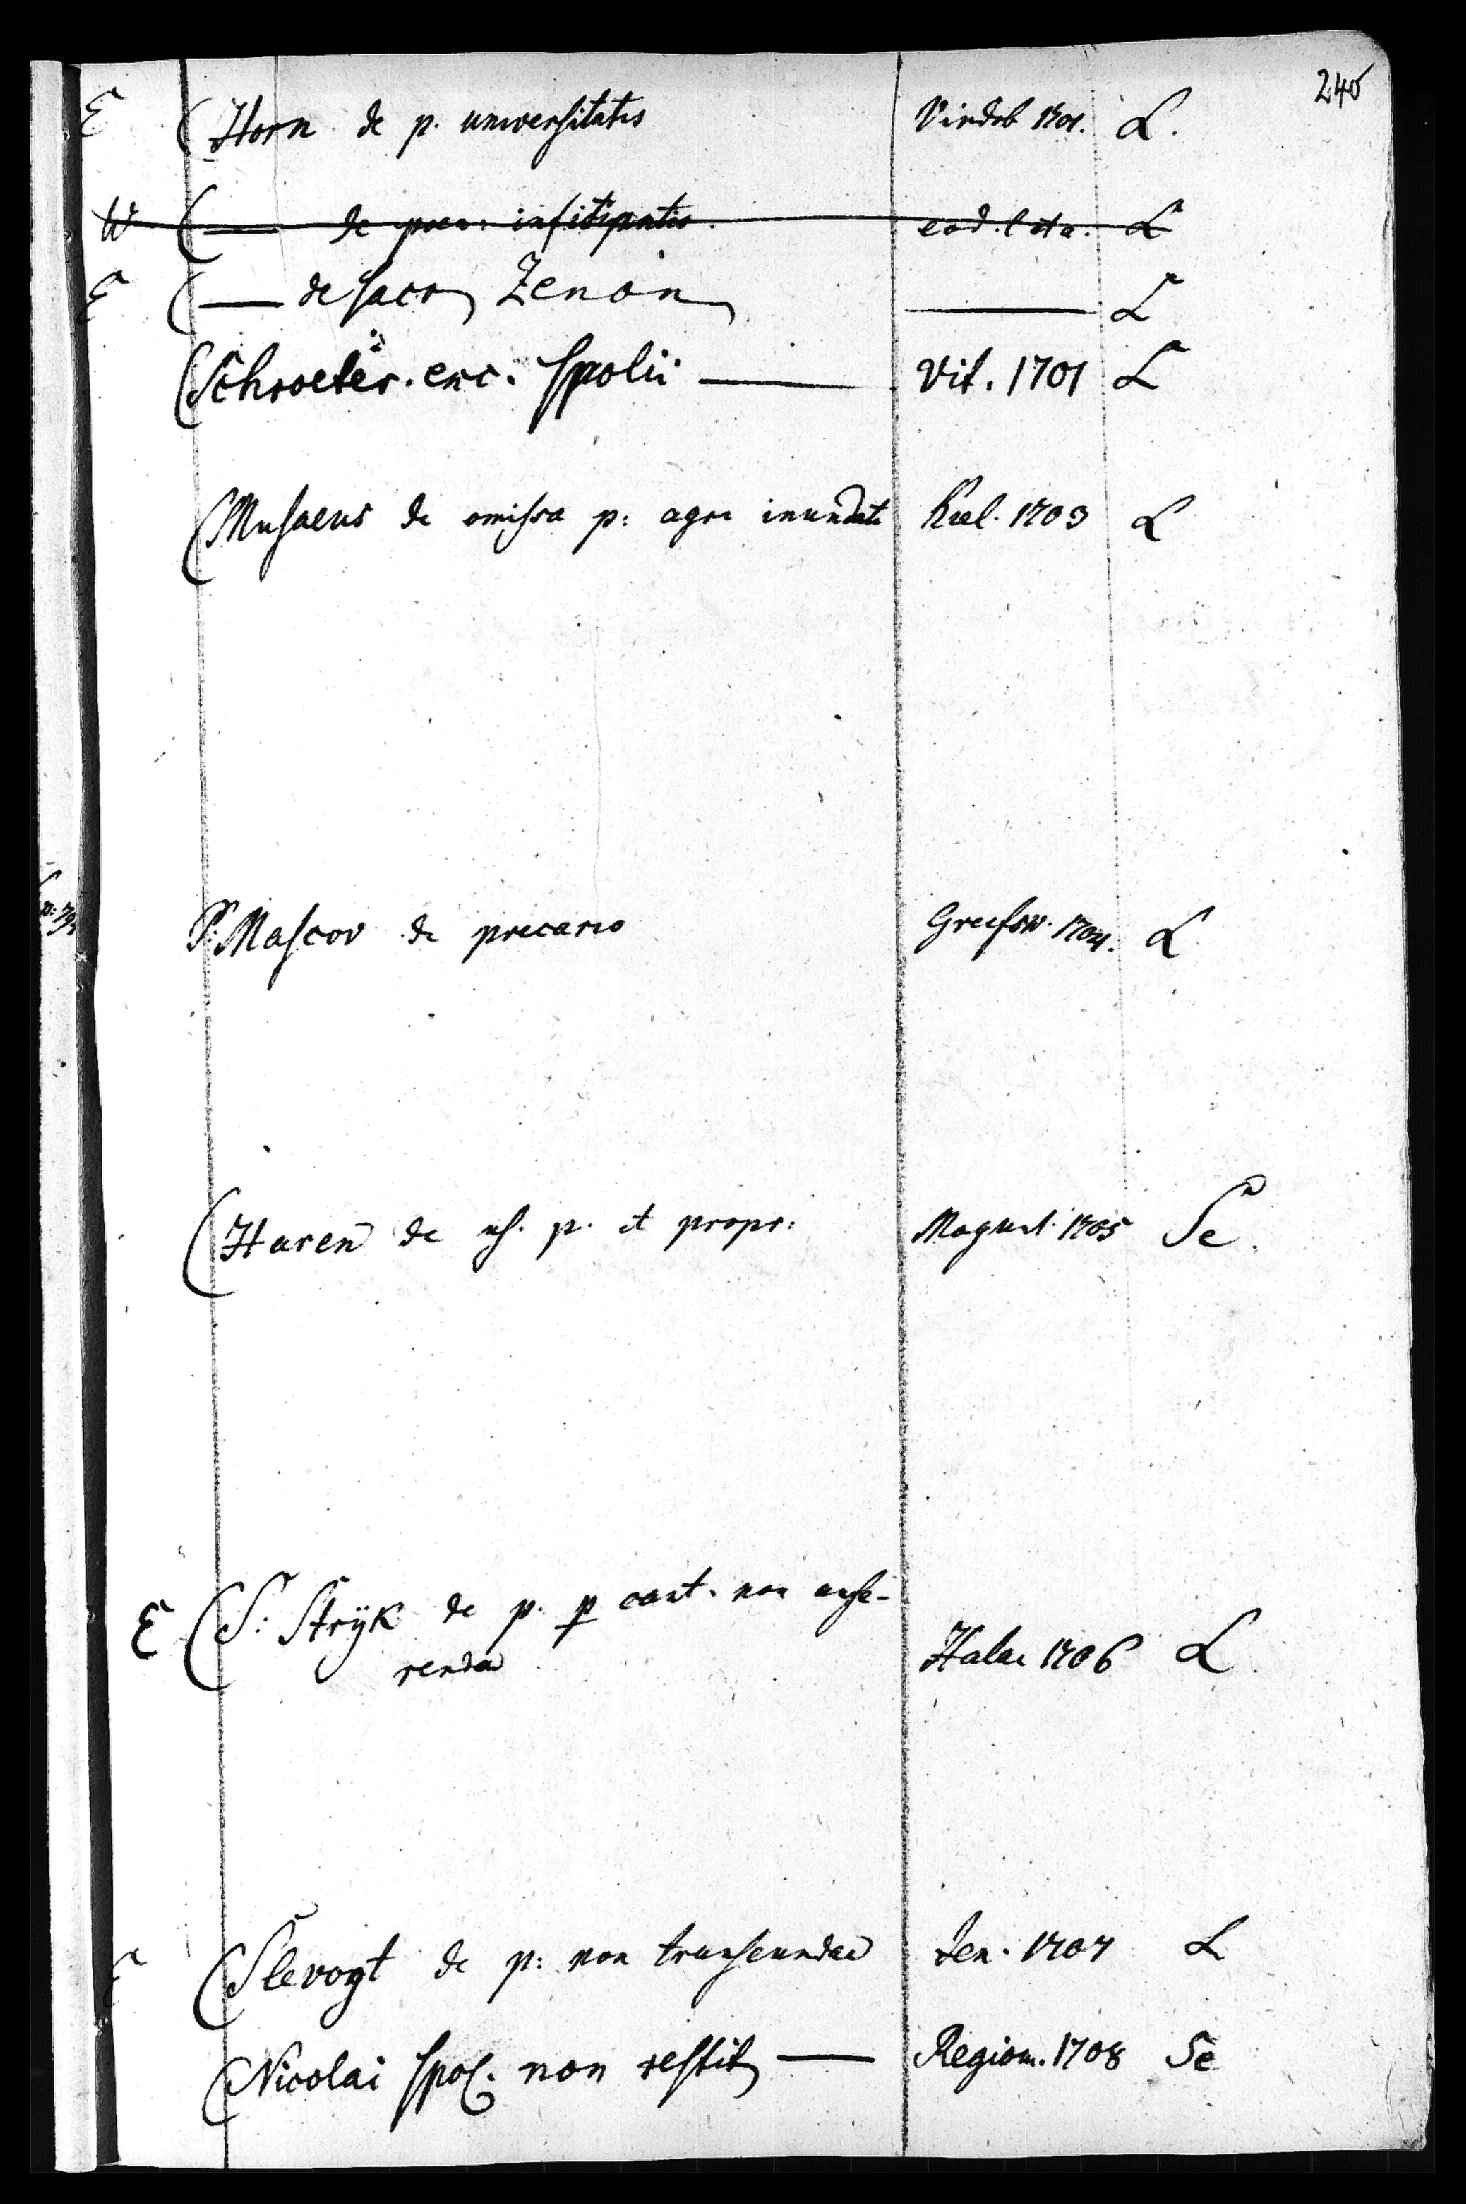 240
E (Horn de p. universitatis Vindob 1701. L.
W (— de poen: infitiationis. eod. L
E (— de sacr Zenon — L
(Schroeter. exc. spolii — Vit. 1701 L
(Musaeus de omissa p: agri inundati Kiel. 1703 L
P. Mascov de precario Greifsw. 1704. L
(Haren de uss. p. et propr: 1705 Se.
E (S: Stryk de p. p cart. non aufe-
renda Halae 1706 L
E (Slevogt de p: non transeundae Jen. 1707 L
(Nicolai spol. non restit — Regiom. 1708 Se